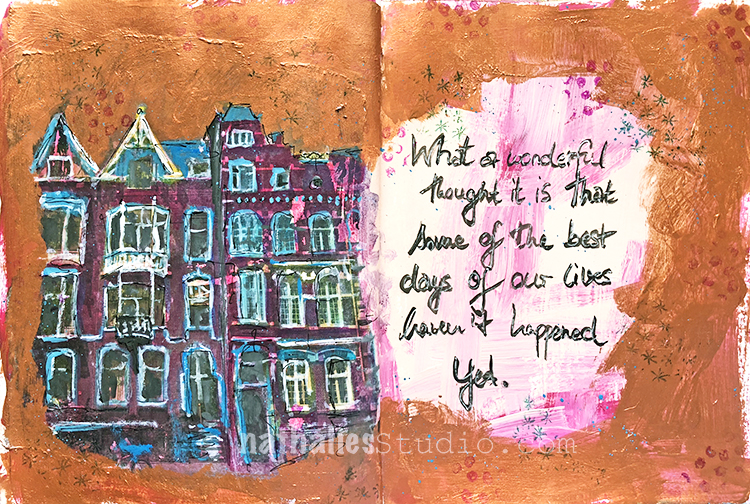 What a wonderful
thought it is that
some of the best
days of our lives
haven't happened
yet.
nathaliesStudio.com